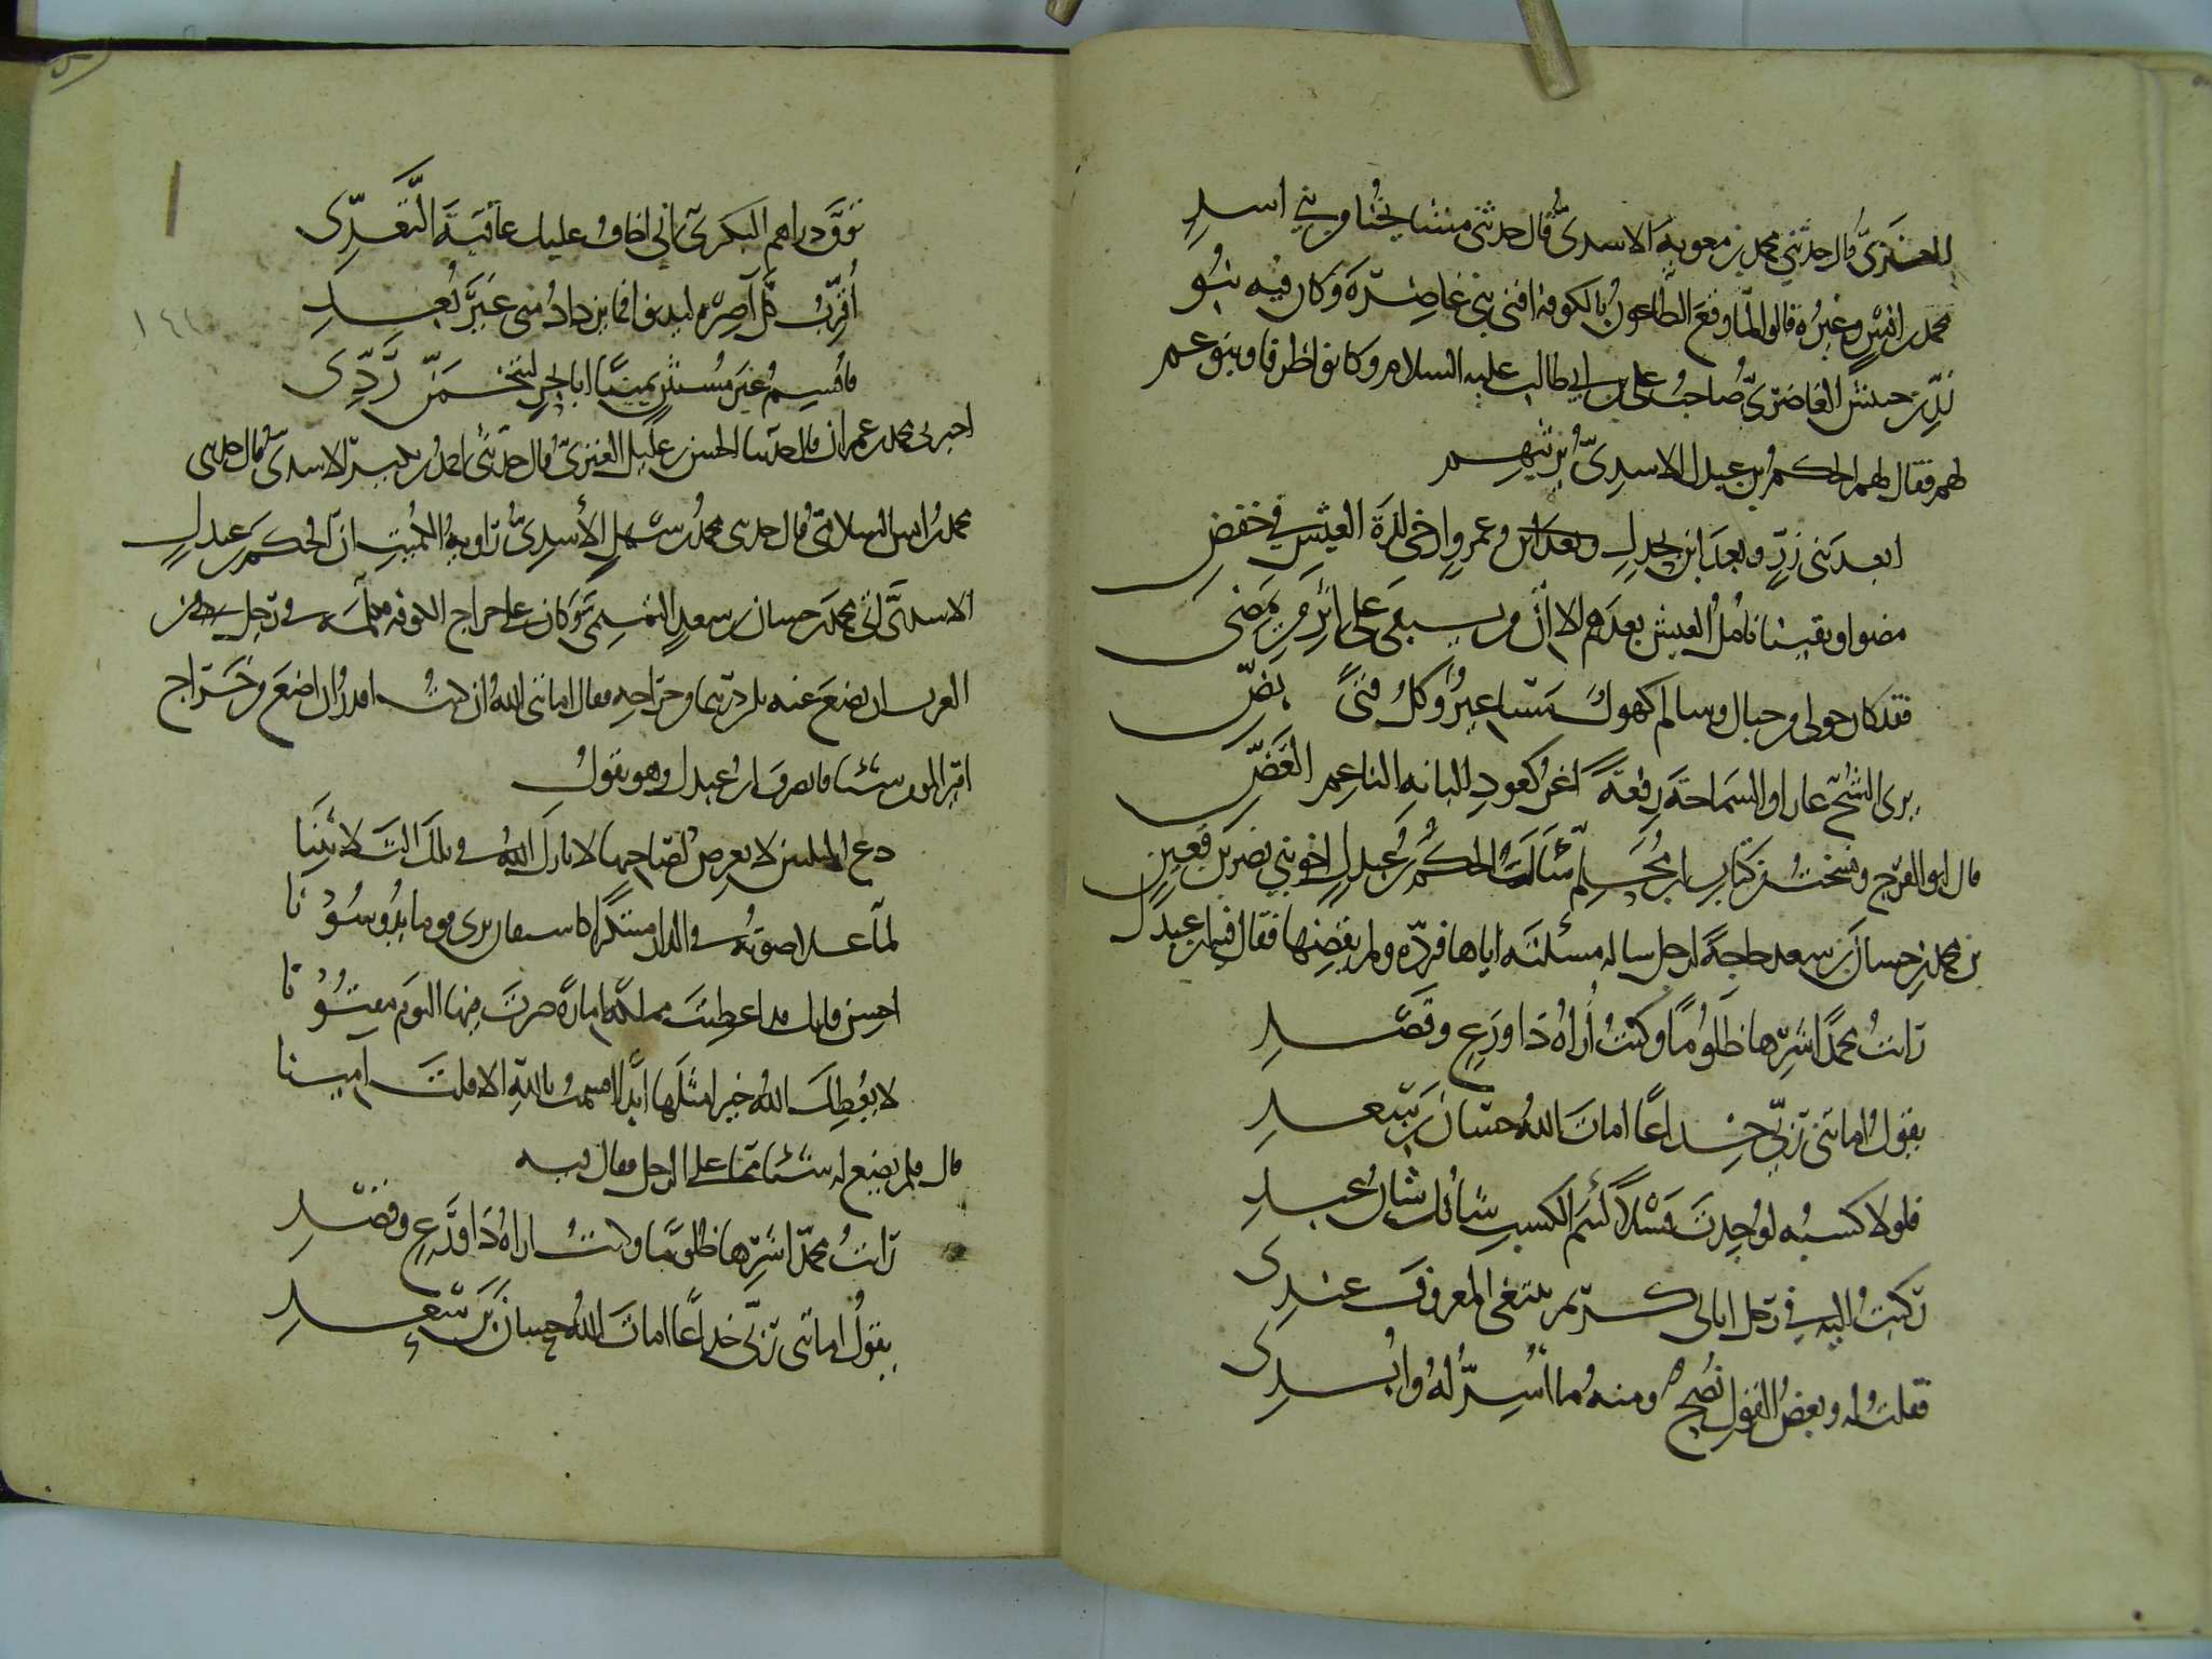 العنزي قال حدثني محمد بن معوية الاسدي قال حدثني مشايخنا من بني اسد
محمد بن انس وغيره قالوا لما وقع الطاعون بالكوفة افنى بني غاضرة وكان فيه بنو
زر بن حبيش الغاضري صاحب علي بن ابي طالب عليه السلام وكانوا ظرفا وبنو عم
لهم فقال لهم الحكم بن عبدل الاسدي يرثيهم
ابعد بني زر وبعد ابن جندل وبعد ابن وعمرو ارتجي لذة العيش في خفض
مضوا وبقينا نامل العيش بعدهم الا ان من يبقى على اثر من يمضي
فقد كان حولي من جبال وسالم كهول مساعير وكل فتى بض
يرى الشح عارا والسماحة رفعة اغر كعود البانة الناعم الغض
قال ابو الفرج ونسخت من كتاب ابن محلم سالت الحكم بن عبدل اخو بني نصر بن قعين
بن محمد بن حسان بن سعد حاجة لرجل ساله مسئلته اياها فرده ولم يقضها فقال فيه ابن عبدل
رايت محمدا شرها ظلوما وكنت اراه ذا ورع وقصد
يقول اماتني ربي خداعا امات الله حسان بن سعد
فلولا كسبه لوجدت فسلا لئيم الكسب شانك شان عبد
ركبت اليه في رجل اتاني كريم يبتغي المعروف عندي
فقلت له وبعض القول نصح ومنه ما اسر له وابدي
توق دراهم البكري اني اخاف عليك عاقبة التعدي
اقرب كل آصرة ليدنو فما يزداد مني غير بعد
فاقسم غير مستثن يمينا ابا لتتخمن ردي
اخبرني محمد بن عمران قال حدثنا الحسن بن عليل العنزي قال حدثني احمد بن بكير الاسدي قال حدثني
محمد بن انس السلامي قال حدثني محمد بن سهل الأسدي راوية الكميت ان الحكم بن عبدل
الاسدي اتى محمد بن حسان بن سعد التميمي وكان على خراج الكوفة فكلمه في رجل من
العرب ان يضع عنه ثلثين درهما من خراجه فقال اماتني الله ان كنت اقدر ان اضع من خراج
امير المؤمنين شيئا فانصرف ابن عبدل وهو يقول
دع الثلثين لا تعرض لصاحبها لا بارك الله في تلك الثلاثينا
لما علا صوته في الدار مبتكرا كاشتفان يرى قوما يدوسونا
احسن فانك قد اعطيت مملكة امارة صرت فيها اليوم مفتونا
لا يعطك الله خيرا مثلها ابدا اقسمت بالله الا قلت آمينا
قال فلم يضع له شيئا مما على الرجل فقال فيه
رايت محمدا شرها ظلوما وكنت اراه ذا ورع وقصد
يقول اماتني ربي خداعا امات الله حسان بن سعد